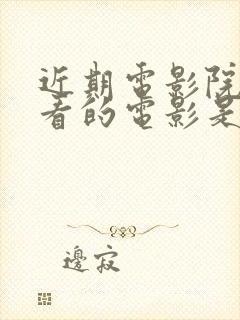 近期電影院
看的電影是
邊寂